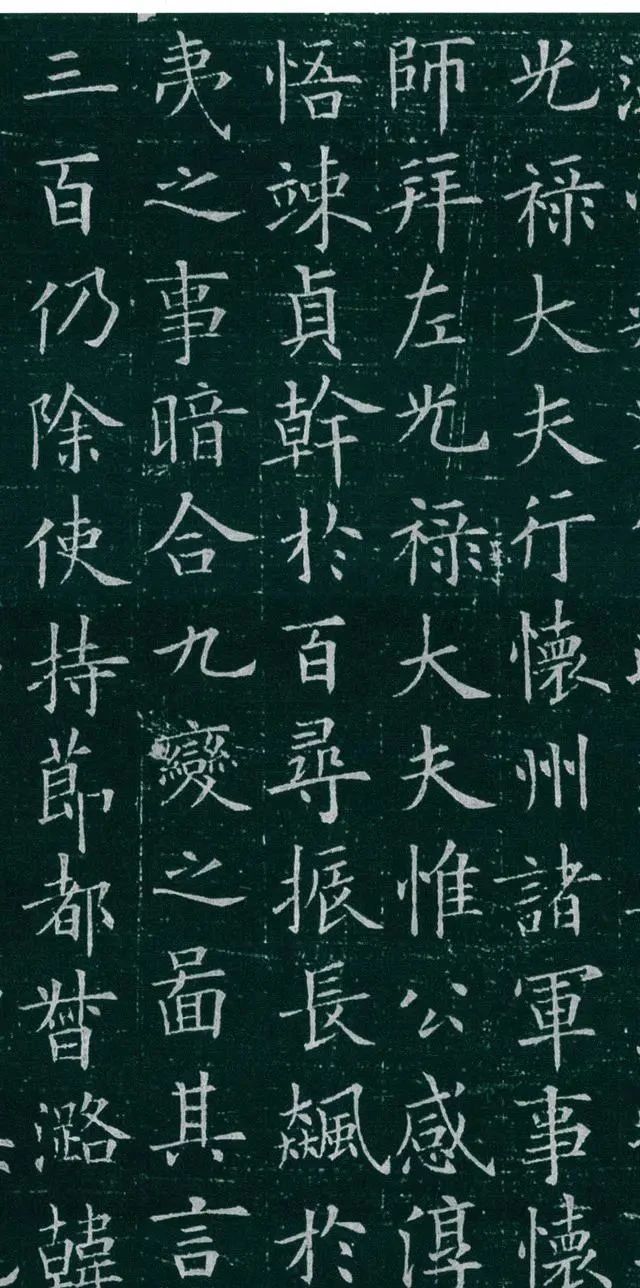 光禄大夫行懷州諸軍事懷
師拜左光禄大夫惟公感淳
悟竦貞幹於百尋振長飆於
夷之事暗合九變之啚其言
三百仍除使持莭都督潞韓